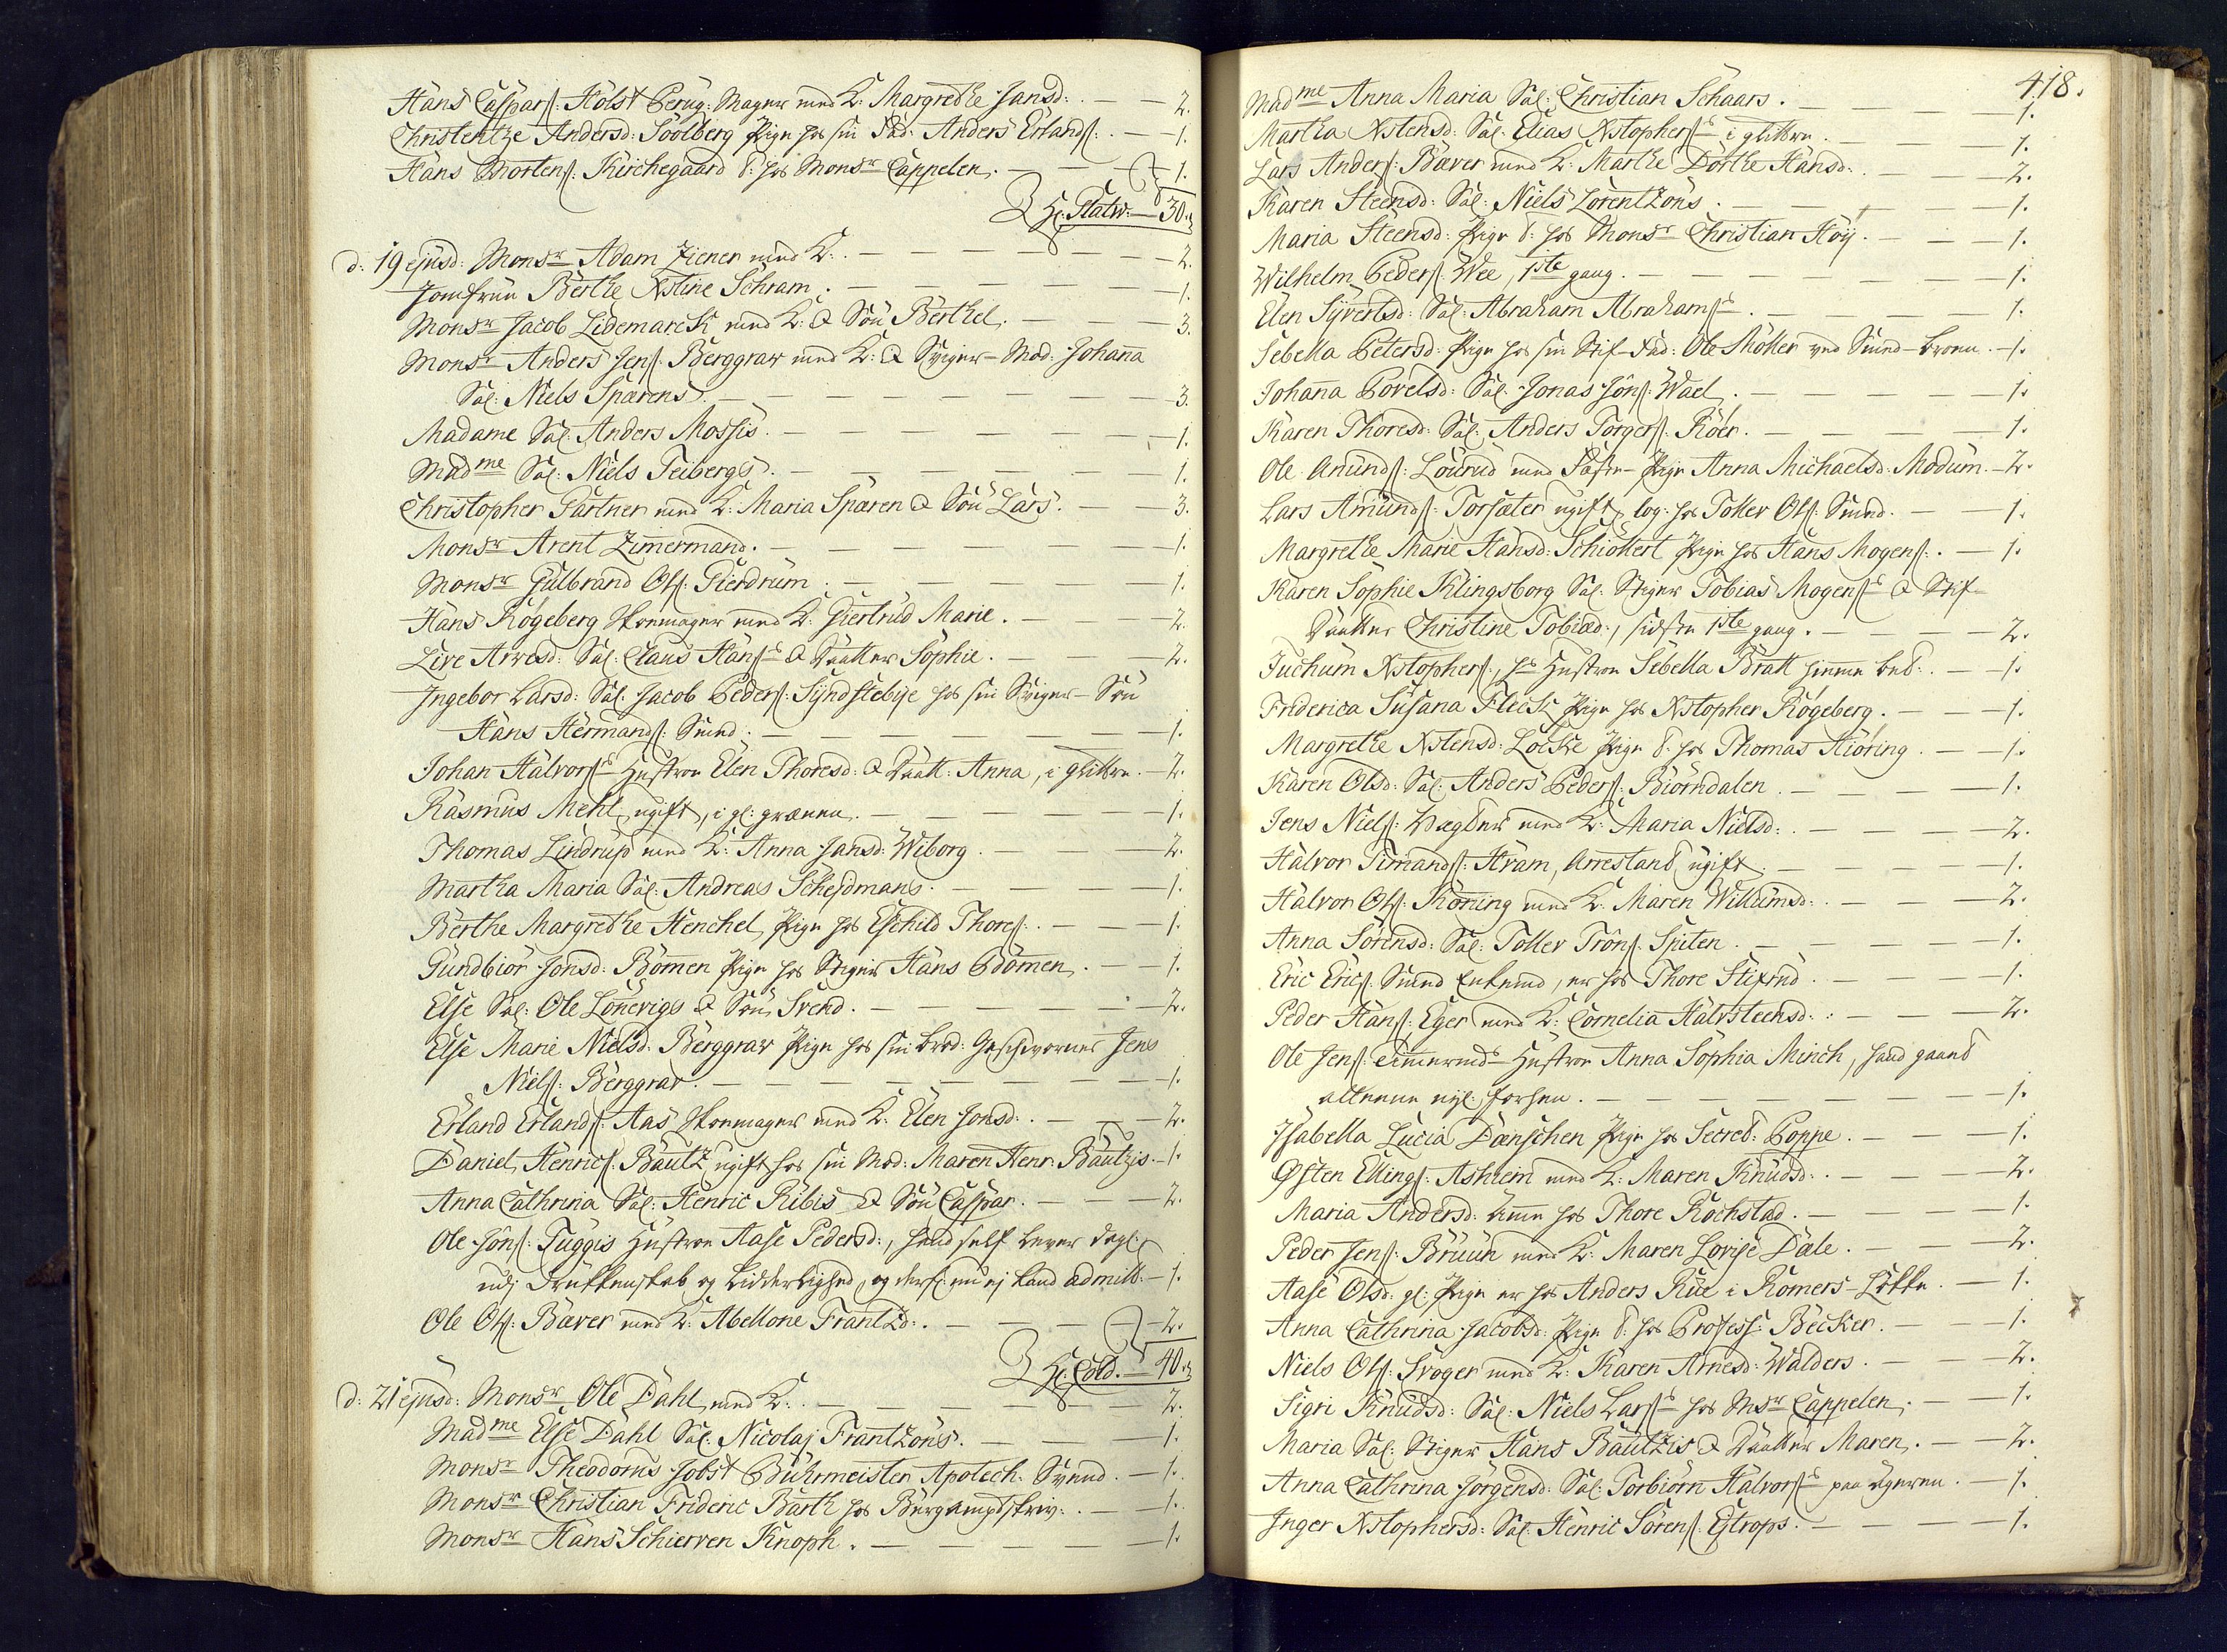 Hans Casparſ: Holst Peruq: Mager med K: Margrethe Jansd: . — — 2.
Christentze Andersd: Soolberg Pige hos sin Fad: Anders Erlandſ: . — 1.
Hans Mortenſ: Kirchegaard T: hos Monsr Cappelen. — — 1.
Hr: Statw: — 30.
d: 19 ejusd: Monsr Adam Ziener med K: . — — — — 2.
Jomfrue Berthe Xstine Schram . — — — — 1.
Monsr Jacob Lidemarck med K: & Søn Berthel. — — — 3.
Monsr Anders Jenſ: Berggrav med K: & Sviger-Mod: Johanna
Sal: Niels Spærens. — — — — — 3.
Madame Sal: Anders Mossis. — — — — — 1.
Madme Sal: Niels Teibergs. — — — — 1.
Christopher Gartner med K: Maria Spæren & Søn Lars. — — 3.
Monsr Arent Zimermand. — — — — — 1.
Monsr Gulbrand Olſ: Gierdrum . — — — — 1.
Hans Rögeberg Skoemager med K: Giertrud Marie . — — — 2.
Live Arvesd: Sal: Claus Hanſes & Daatter Sophie. — — — 2.
Ingebor Larsd: Sal: Jacob Pederſ: Syndstebye hos sin Sviger-Søn
Hans Hermandſ: Smed . — — — — — 1.
Johan Halvorſes Hustroe Elen Thoresd: & Daatt: Anna, i glittre. — 2.
Rasmus Mehl, ugift, i gl: grænen. — — — — 1.
Thomas Lindrup med K: Anna Jansd: Wiborg . — — — 2.
Martha Maria Sal: Andreas Schejdmans. — — — — 1.
Berthe Margrethe Henchel, Pige hos Eschild Thoreſ: . — — — 1.
Gundbiör Jonsd: Bömen Pige hos Stiger Hans Bömen. — — 1.
Else Sal: Ole Lönevigs & Søn Svend . — — — — 2.
Else Marie Nielsd: Berggrav Pige hos sin Brod: Geschworner Jens
Nielſ: Berggrav. — — — — — — 1.
Erland Erlandſ: Aas Skoemager med K: Elen Jonsd: . — — — 2.
Daniel Henricſ: Bautz ugift hos sin Mod: Maren Henr: Bautzis. — 1.
Anna Cathrina Sal: Henric Ribis & Søn Caspar. — — — 2.
Ole Jönſ: Tuggis Hustroe Aase Pedersd:, hand self lever dagl:
udj Drukkenskab og Liderlighed, og derf: nu ej kand admitt: — 1.
Ole Olſ: Bæver med K: Abellone Frantzd: . — — — 2.
Hr: Cold. — 40.
d: 21 ejusd: Monsr Ole Dahl med K: . — — — — 2.
Madme Else Dahl Sal: Nicolaj Frantzöns. — — — 1.
Monsr Theodorus Jobst Buhrmeister Apotech: Svend. — 1.
Monsr Christian Frideric Barth hos Bergamptskriv: . — — 1.
Monsr Hans Schierven Knoph . — — — — — 1.
418.
Madme Anna Maria Sal: Christian Schaars . — — — 1.
Martha Xstensd: Sal: Elias Xstopherſes i glittre . — — — 1.
Lars Anderſ: Bæver med K: Marthe Dorthe Hansd: . — — 2.
Karen Steensd: Sal: Niels Lorentzöns . — — — — 1.
Maria Steensd: Pige T: hos Monsr Christian Höy. — — — 1.
Wilhelm Pederſ: Wee, 1ste gang . — — — — 1.
Elen Syvertsd: Sal: Abraham Abrahamſes . — — — — 1.
Sebella Petersd: Pige hos sin Stif-Fad: Ole Moller ved Smed-Broen. — 1.
Johana Povelsd: Sal: Jonas Jönſ: Wael. — — — — 1.
Karen Thoresd: Sal: Anders Torgerſ: Röer. — — — 1.
Ole Amundſ: Lourud med Fæste-Pige Anna Michaelsd: Modum. — 2.
Lars Amundſ: Torsæter ugift, log: hos Toller Olſ: Smed. — — 1.
Margrethe Marie Hansd: Schiöttert Pige hos Hans Mogenſ: . — 1.
Karen Sophie Klingsborg Sal: Stiger Tobias Mogenſes & Stif-
Daatter Christine Tobiæd:, sidste 1ste gang . — — — 2.
Juchum Xstopherſ:, hs Hustroe Sebella Bratt hiemme ber: . — 1.
Friderica Susana Fleck, Pige hos Xstopher Rögeberg . — — — 1.
Margrethe Xstensd: Locke Pige T: hos Thomas Hiöring . — — 1.
Karen Olsd: Sal: Anders Pederſ: Biörndalen . — — — — 1.
Jens Nielſ: Vægter med K: Maria Nielsd: . — — — — 2.
Halvor Simandſ: Hvam, Arrestant, ugift . — — — — 1.
Halvor Olſ: Korning med K: Maren Willumsd: . — — — 2.
Anna Sörensd: Sal: Toller Trönſ: Spiten . — — — — 1.
Eric Ericſ: Smed Enkemd, er hos Thore Stixrud . — — — 1.
Peder Hanſ: Eger med K: Cornelia Halvsteensd: . — — — 2.
Ole Jenſ: Timermds Hustroe Anna Sophia Minch, hand gaaed
alleene nyl: forhen . — — — — — — 1.
Isabella Lucia Dænschen Pige hos Secret: Poppe . — — — 1.
Østen Ellingſ: Asheim med K: Maren Knudsd: . — — — 2.
Maria Andersd: Amme hos Thore Rochstad . — — — — 1.
Peder Jenſ: Bruun med K: Maren Lovise Dæle . — — — 2.
Aase Olsd: gl: Pige er hos Anders Rue i Romers-Løkke . — 1.
Anna Cathrina Jacobsd: Pige T: hos Profess: Becker . — — 1.
Niels Olſ: Svoger med K: Karen Arnesd: Walders . — — — 2.
Sigri Knudsd: Sal: Niels Larſes hos Msr Cappelen. — — 1.
Maria Sal: Stiger Hans Bautzis & Daatter Maren. — — 2.
Anna Cathrina Jörgensd: Sal: Torbiörn Halvorſes paa Ageren . — 1.
Inger Xstophersd: Sal: Henric Sörenſ: Estrops . — — — 1.